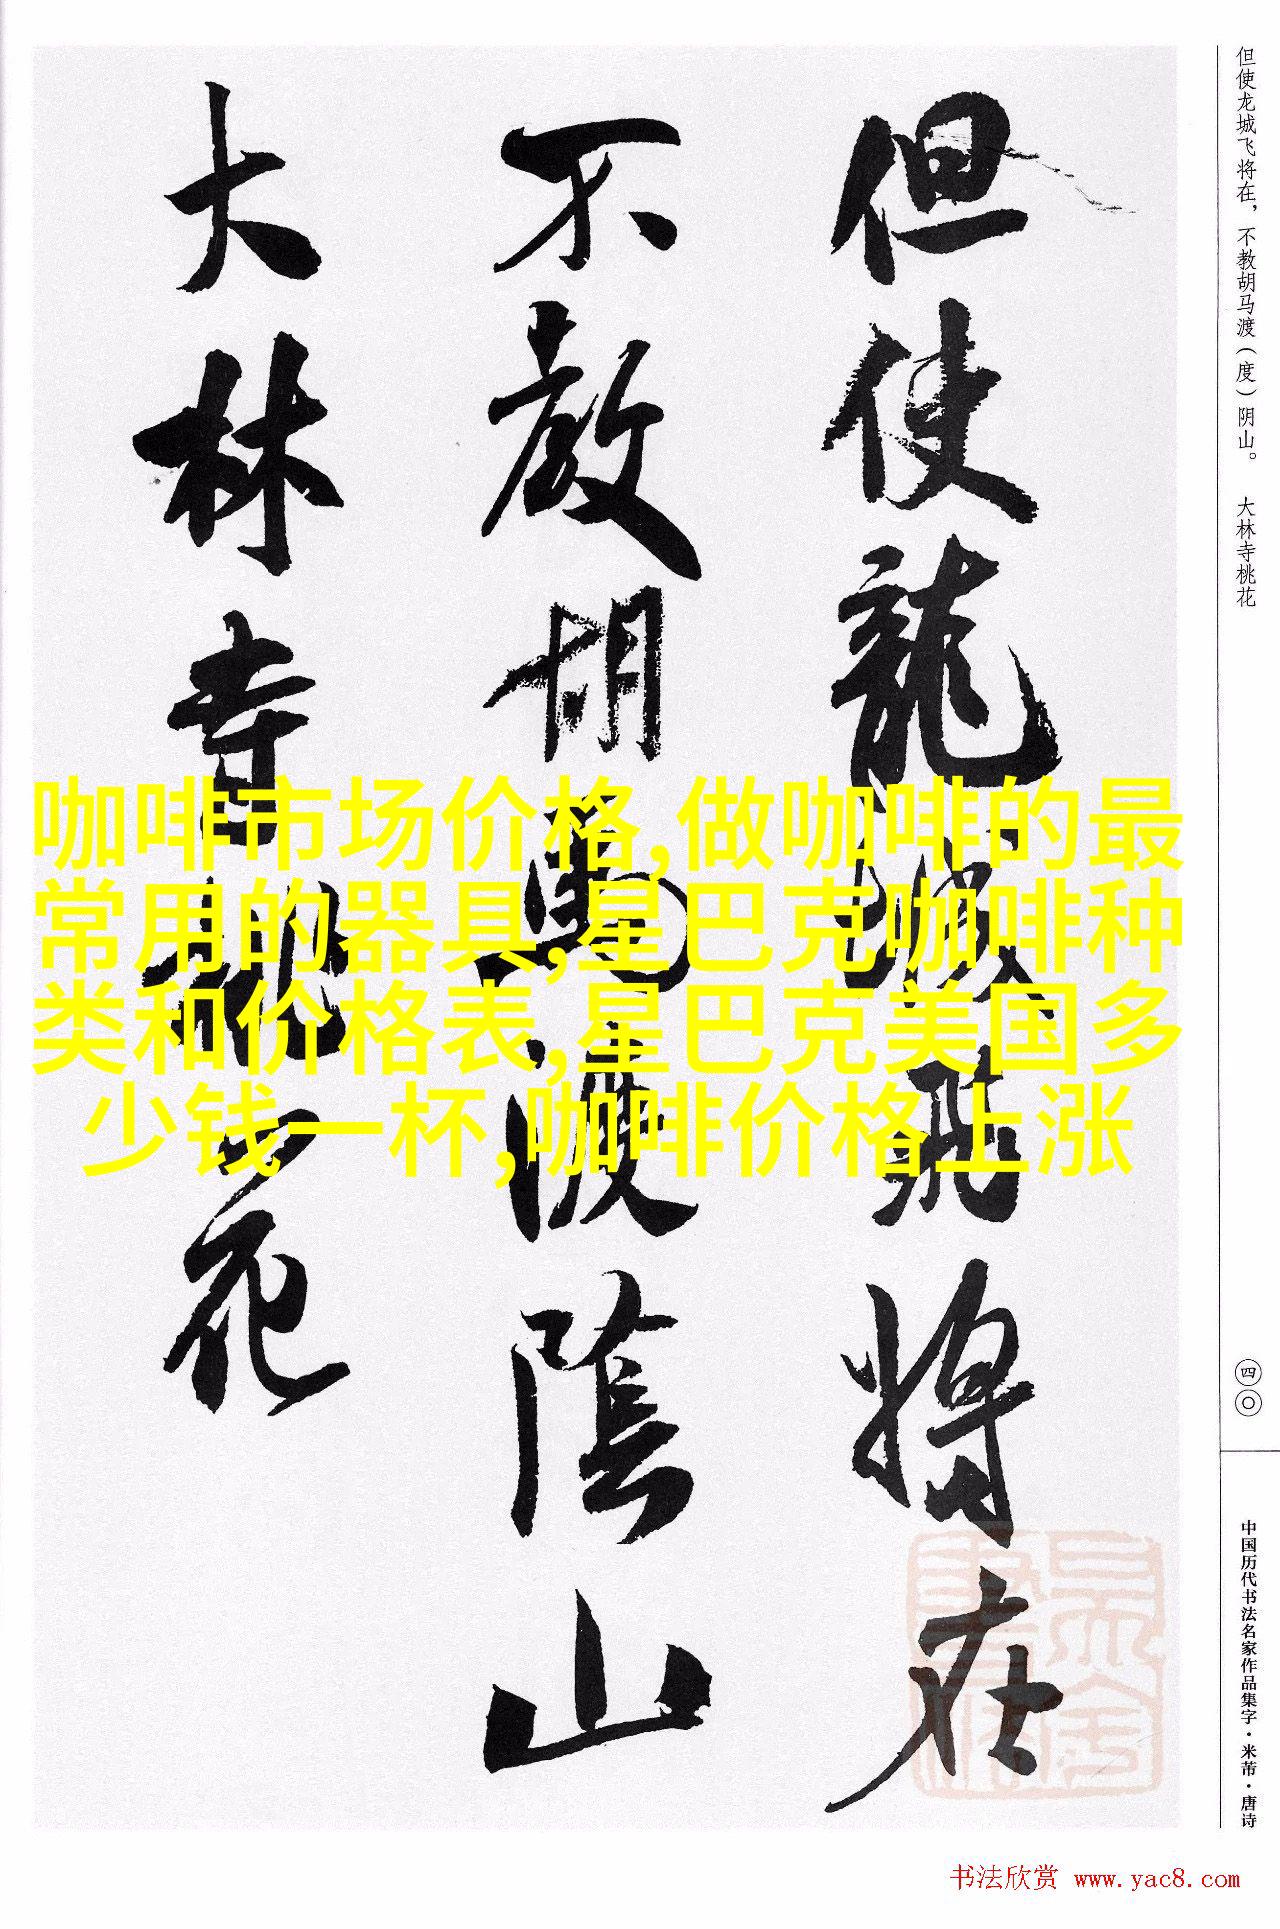 但使龙城飞将在，不教胡马渡（度）阴山。 大林寺桃花
但使龍城飛将在
不教胡馬渡陰山
大林寺桃花
咖啡市场价格,做咖啡的最
常用的器具,星巴克咖啡种
类和价格表,星巴克美国多
少钱一杯,咖啡价格上涨
四〇
中国历代书法名家作品集字·米芾·唐诗
书法欣赏 www.yac8.com